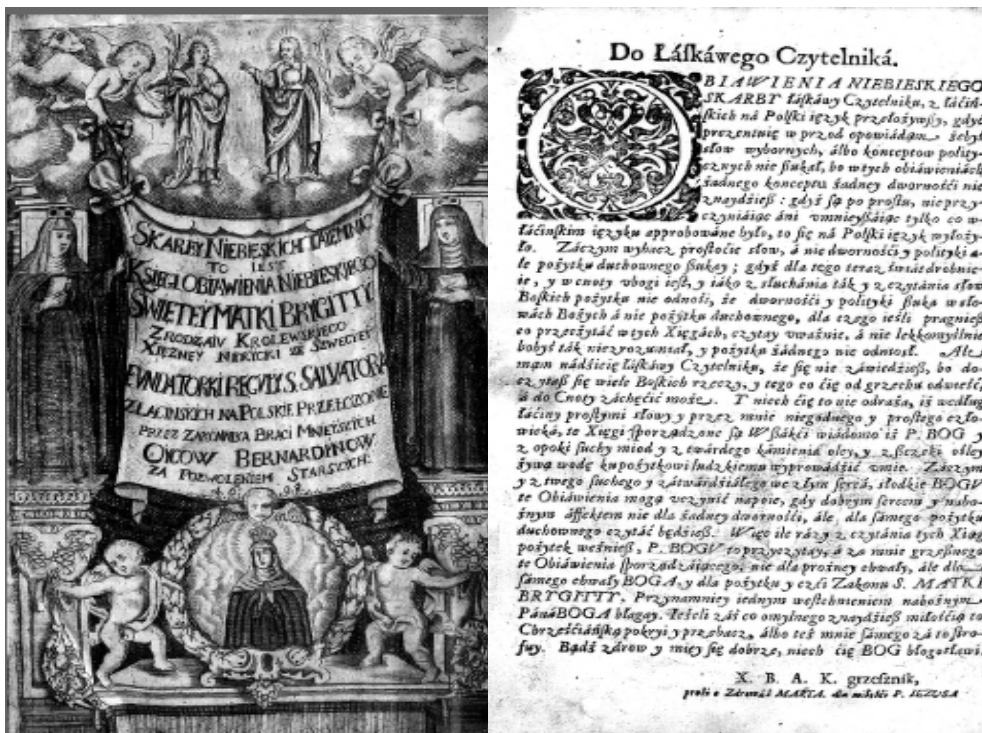 SKARBY NIEBIESKICH TAIEMNIC
TO IEST
KSIĘGI OBIAWIENIA NIEBIESKIEGO
SWIĘTEY MATKI BRYGITTY
Z RODZAIV KROLEWSKIEGO
XIĘZNEY NERYCKI ZE SZWECYEY
FVNDATORKI REGVŁY S. SALVATORA
Z ŁACINSKICH NA POLSKIE PRZEŁOZONE
PRZEZ ZAKONNIKA BRACI MNIEYSZYCH
OYCOW BERNARDYNOW
ZA POZWOLENIEM STARSZYCH
Do Łáſkáwego Czytelniká.
OBIAWIENIA NIEBIESKIEGO
SKARBY łáſkáwy Czytelniku, z łáćiń-
ſkich ná Polſki ięzyk przełożywſzy, gdyć
prezentuię w przod opowiádam, żebyś
słow wybornych, álbo konceptow polity-
cznych nie ßukał, bo w tych obiáwieniách
żadnego konceptu żadney dwornośći nie
znaydzieß: gdyż ſą po proſtu, nie przy-
czyniáiąc áni vmnieyßáiąc tylko co w
łáćińſkim ięzyku approbowáne było, to ſię ná Polſki ięzyk wyłoży-
ło. Záczym wybacz proſtoćie słow, á nie dwornośći y polityki á-
le pożytku duchownego ßukay; gdyż dla tego teraz świát drobnie-
ie, y w cnoty vbogi ieſt, y iáko z słuchánia ták y z czytánia słow
Boſkich pożytku nie odnośi, że dwornośći y polityki ßuka w sło-
wách Bożych á nie pożytku duchownego, dla czego ieśli prágnieß
co przeczytáć w tych Xięgách, czytay vważnie, á nie lekkomyślnie
bobyś ták nie zrozumiał, y pożytku żádnego nie odnioſł. Ale
mam nádźieię łáſkáwy Czytelniku, że ſię nie záwiedźieß, bo do-
czytaß ſię wiele Boſkich rzeczy, y tego co ćię od grzechu odwieść,
á do Cnoty záchęćić może. Y niech ćię to nie odraża, iż według
łáćiny proſtymi słowy y przez mnie niegodnego y proſtego czło-
wieká, te Xięgi ſporządzone ſą Wßákći wiádomo iż P. BOG y
z opoki ſuchy miod y z twárdego kámieniá oley, y z ßczeki ośley
żywą wodę ku pożytkowi ludzkiemu wyprowádźić vmie. Záczym
y z twego ſuchego y zátwárdźiáłego we złym ſercá, słodkie BOGV
te Obiáwienia mogą vczynić napoie, gdy dobrym ſercem y nabo-
żnym áffektem nie dla żadney dwornośći, ále dla ſámego pożytku
duchownego czytáć będźieß. Więc ile rázy z czytánia tych Xiąg
pożytek weźmieß, P. BOGV to przyczytay, á zá mnie grzeßnego
te Obiáwienia ſporządzáiącego, nie dla prożney chwały, ále dla
ſámego chwały BOGA, y dla pożytku y czći Zakonu S. MATKI
BRYGITTY. Przynamniey iednym weſtchnieniem nabożnym
Páná BOGA błagay. Ieżeli záś co omylnego znaydźieß miłośćią to
Chrześćiáńſką pokryi y przebacz, álbo też mnie ſámego zá to ſtro-
fuy. Bądź zdrow y miey ſię dobrze, niech ćię BOG błogosłáwi.
X. B. A. K. grzeſznik,
prośi o Zdrowáś MARYA. dla miłośći P. IEZUSA